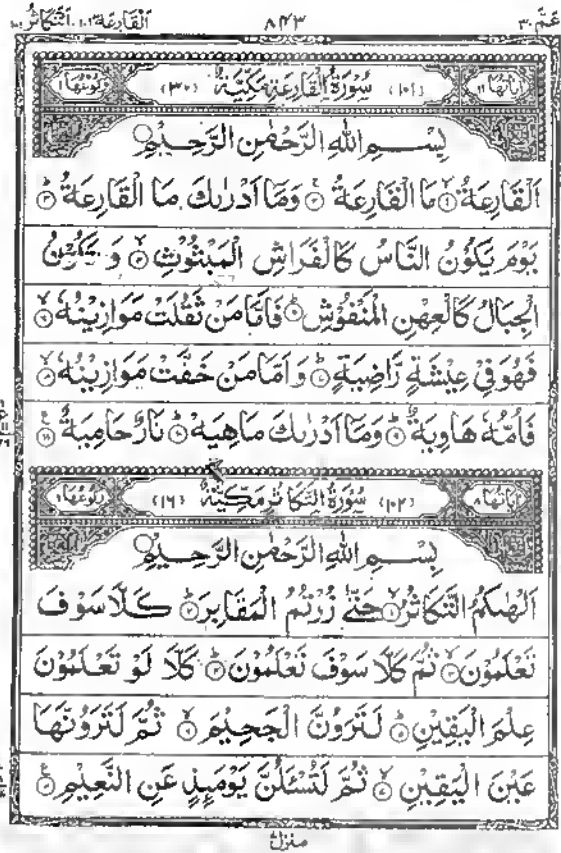 عَمَّ ٣٠ ٨٤٣ اَلْقَارِعَة ١٠١، اَلتَّكَاثُر ١٠٢
اٰيَاتُهَا ١١ (١٠١) سُوْرَةُ الْقَارِعَةِ مَكِّيَّةٌ (٣٠) رُكُوْعُهَا ١
بِسْمِ اللّٰهِ الرَّحْمٰنِ الرَّحِيْمِ
اَلْقَارِعَةُ ۙ﴿١﴾ مَا الْقَارِعَةُ ۚ﴿٢﴾ وَمَاۤ اَدْرٰىكَ مَا الْقَارِعَةُ ؕ﴿٣﴾
يَوْمَ يَكُوْنُ النَّاسُ كَالْفَرَاشِ الْمَبْثُوْثِ ۙ﴿٤﴾ وَ تَكُوْنُ
الْجِبَالُ كَالْعِهْنِ الْمَنْفُوْشِ ؕ﴿٥﴾ فَاَمَّا مَنْ ثَقُلَتْ مَوَازِيْنُهٗ ۙ﴿٦﴾
فَهُوَ فِيْ عِيْشَةٍ رَّاضِيَةٍ ؕ﴿٧﴾ وَ اَمَّا مَنْ خَفَّتْ مَوَازِيْنُهٗ ۙ﴿٨﴾
فَاُمُّهٗ هَاوِيَةٌ ؕ﴿٩﴾ وَمَاۤ اَدْرٰىكَ مَاهِيَهْ ؕ﴿١٠﴾ نَارٌ حَامِيَةٌ ﴿١١﴾
اٰيَاتُهَا ٨ (١٠٢) سُوْرَةُ التَّكَاثُرِ مَكِّيَّةٌ (١٦) رُكُوْعُهَا ١
بِسْمِ اللّٰهِ الرَّحْمٰنِ الرَّحِيْمِ
اَلْهٰىكُمُ التَّكَاثُرُ ۙ﴿١﴾ حَتّٰى زُرْتُمُ الْمَقَابِرَ ؕ﴿٢﴾ كَلَّا سَوْفَ
تَعْلَمُوْنَ ۙ﴿٣﴾ ثُمَّ كَلَّا سَوْفَ تَعْلَمُوْنَ ؕ﴿٤﴾ كَلَّا لَوْ تَعْلَمُوْنَ
عِلْمَ الْيَقِيْنِ ؕ﴿٥﴾ لَتَرَوُنَّ الْجَحِيْمَ ۙ﴿٦﴾ ثُمَّ لَتَرَوُنَّهَا
عَيْنَ الْيَقِيْنِ ۙ﴿٧﴾ ثُمَّ لَتُسْـَٔلُنَّ يَوْمَىِٕذٍ عَنِ النَّعِيْمِ ﴿٨﴾
منزل